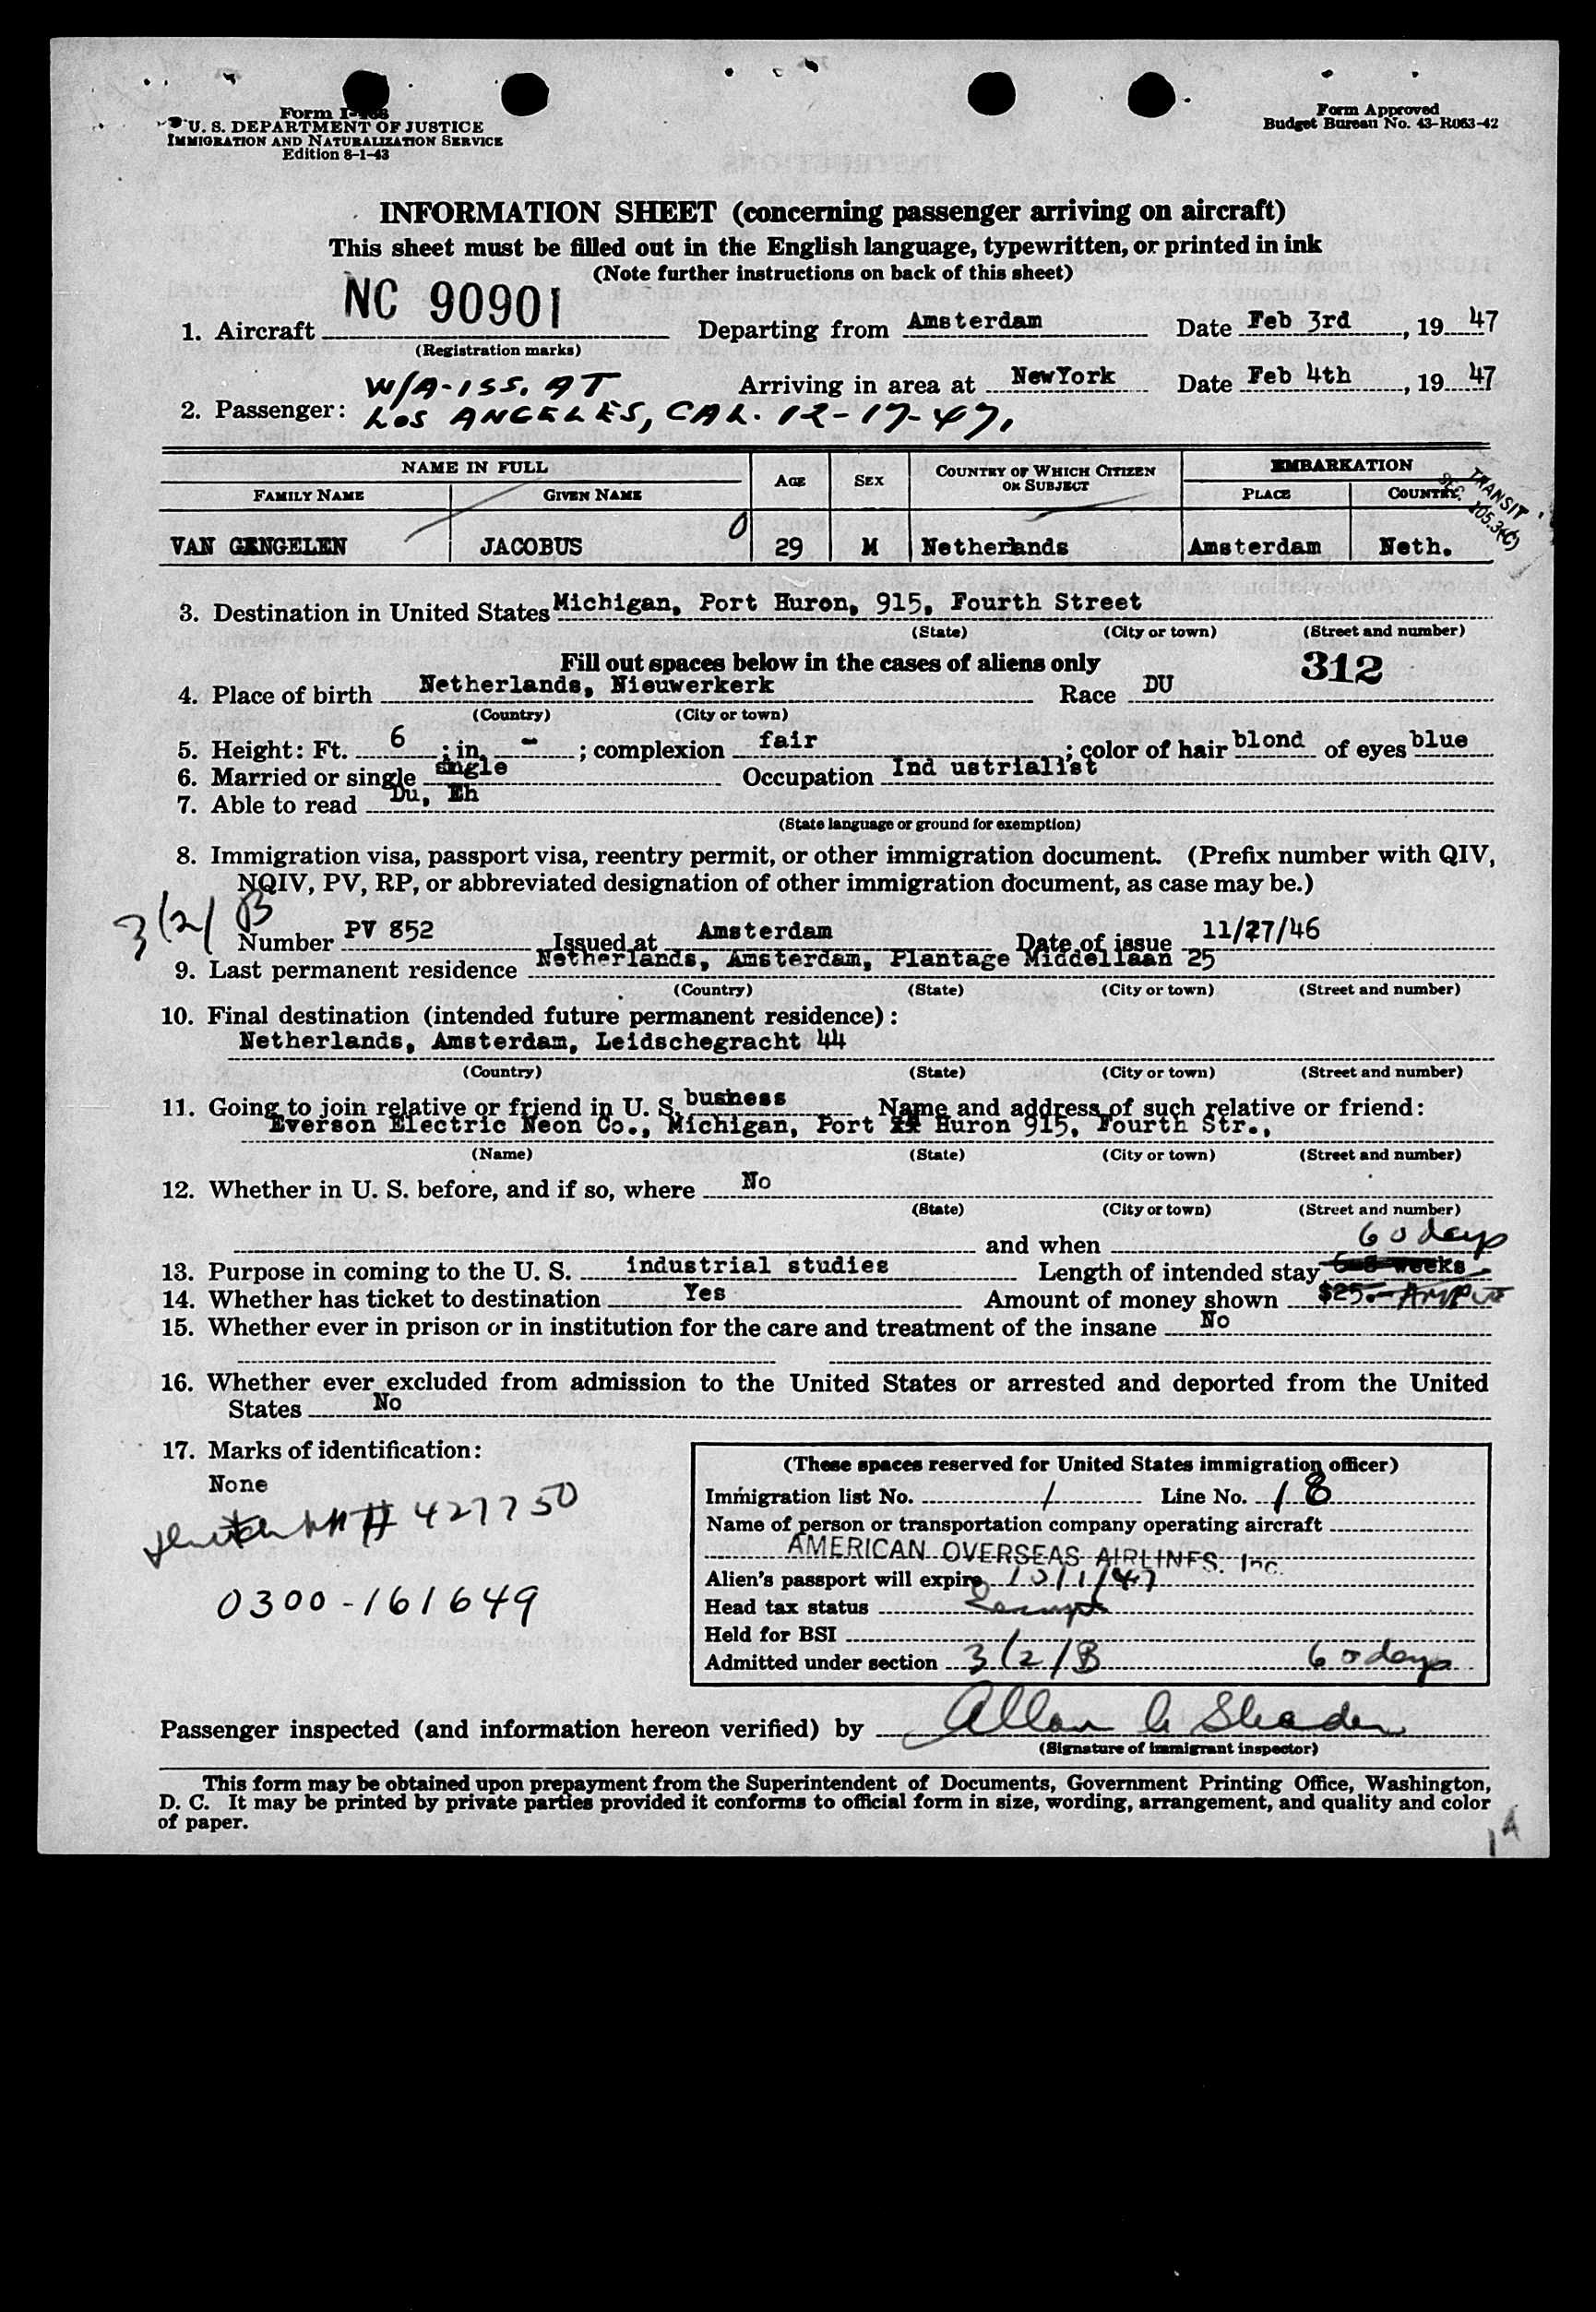 Form I-466
U. S. DEPARTMENT OF JUSTICE
IMMIGRATION AND NATURALIZATION SERVICE
Edition 8-1-43
Form Approved
Budget Bureau No. 43-R063-42
INFORMATION SHEET (concerning passenger arriving on aircraft)
This sheet must be filled out in the English language, typewritten, or printed in ink
(Note further instructions on back of this sheet)
1. Aircraft NC 90901 Departing from Amsterdam Date Feb 3rd, 19 47
(Registration marks)
W/A-ISS. AT Arriving in area at NewYork Date Feb 4th, 19 47
2. Passenger: LOS ANGELES, CAL. 12-17-47,
NAME IN FULL AGE SEX COUNTRY OF WHICH CITIZEN OR SUBJECT EMBARKATION
FAMILY NAME GIVEN NAME PLACE COUNTRY
TRANSIT
SEC. 105.3(C)
VAN GENGELEN JACOBUS 0 29 M Netherlands Amsterdam Neth.
3. Destination in United States Michigan, Port Huron, 915, Fourth Street
(State) (City or town) (Street and number)
Fill out spaces below in the cases of aliens only 312
4. Place of birth Netherlands, Nieuwerkerk Race DU
(Country) (City or town)
5. Height: Ft. 6 ; in. - ; complexion fair ; color of hair blond of eyes blue
6. Married or single single Occupation Ind ustrialist
7. Able to read Du, Eh
(State language or ground for exemption)
8. Immigration visa, passport visa, reentry permit, or other immigration document. (Prefix number with QIV,
NQIV, PV, RP, or abbreviated designation of other immigration document, as case may be.)
3(2) B
Number PV 852 Issued at Amsterdam Date of issue 11/27/46
9. Last permanent residence Netherlands, Amsterdam, Plantage Middellaan 25
(Country) (State) (City or town) (Street and number)
10. Final destination (intended future permanent residence):
Netherlands, Amsterdam, Leidschegracht 44
(Country) (State) (City or town) (Street and number)
11. Going to join relative or friend in U. S. business Name and address of such relative or friend:
Everson Electric Neon Co., Michigan, Port Huron 915, Fourth Str.,
(Name) (State) (City or town) (Street and number)
12. Whether in U. S. before, and if so, where No
(State) (City or town) (Street and number)
and when 60 days
13. Purpose in coming to the U. S. industrial studies Length of intended stay 6-8 weeks
14. Whether has ticket to destination Yes Amount of money shown $25.-
15. Whether ever in prison or in institution for the care and treatment of the insane No
16. Whether ever excluded from admission to the United States or arrested and deported from the United
States No
17. Marks of identification:
None
# 427750
0300-161649
(These spaces reserved for United States immigration officer)
Immigration list No. 1 Line No. 18
Name of person or transportation company operating aircraft
AMERICAN OVERSEAS AIRLINES. Inc.
Alien's passport will expire 10/1/47
Head tax status Exempt
Held for BSI
Admitted under section 3(2)B 60 days
Passenger inspected (and information hereon verified) by Allan
(Signature of immigrant inspector)
This form may be obtained upon prepayment from the Superintendent of Documents, Government Printing Office, Washington,
D. C. It may be printed by private parties provided it conforms to official form in size, wording, arrangement, and quality and color
of paper.